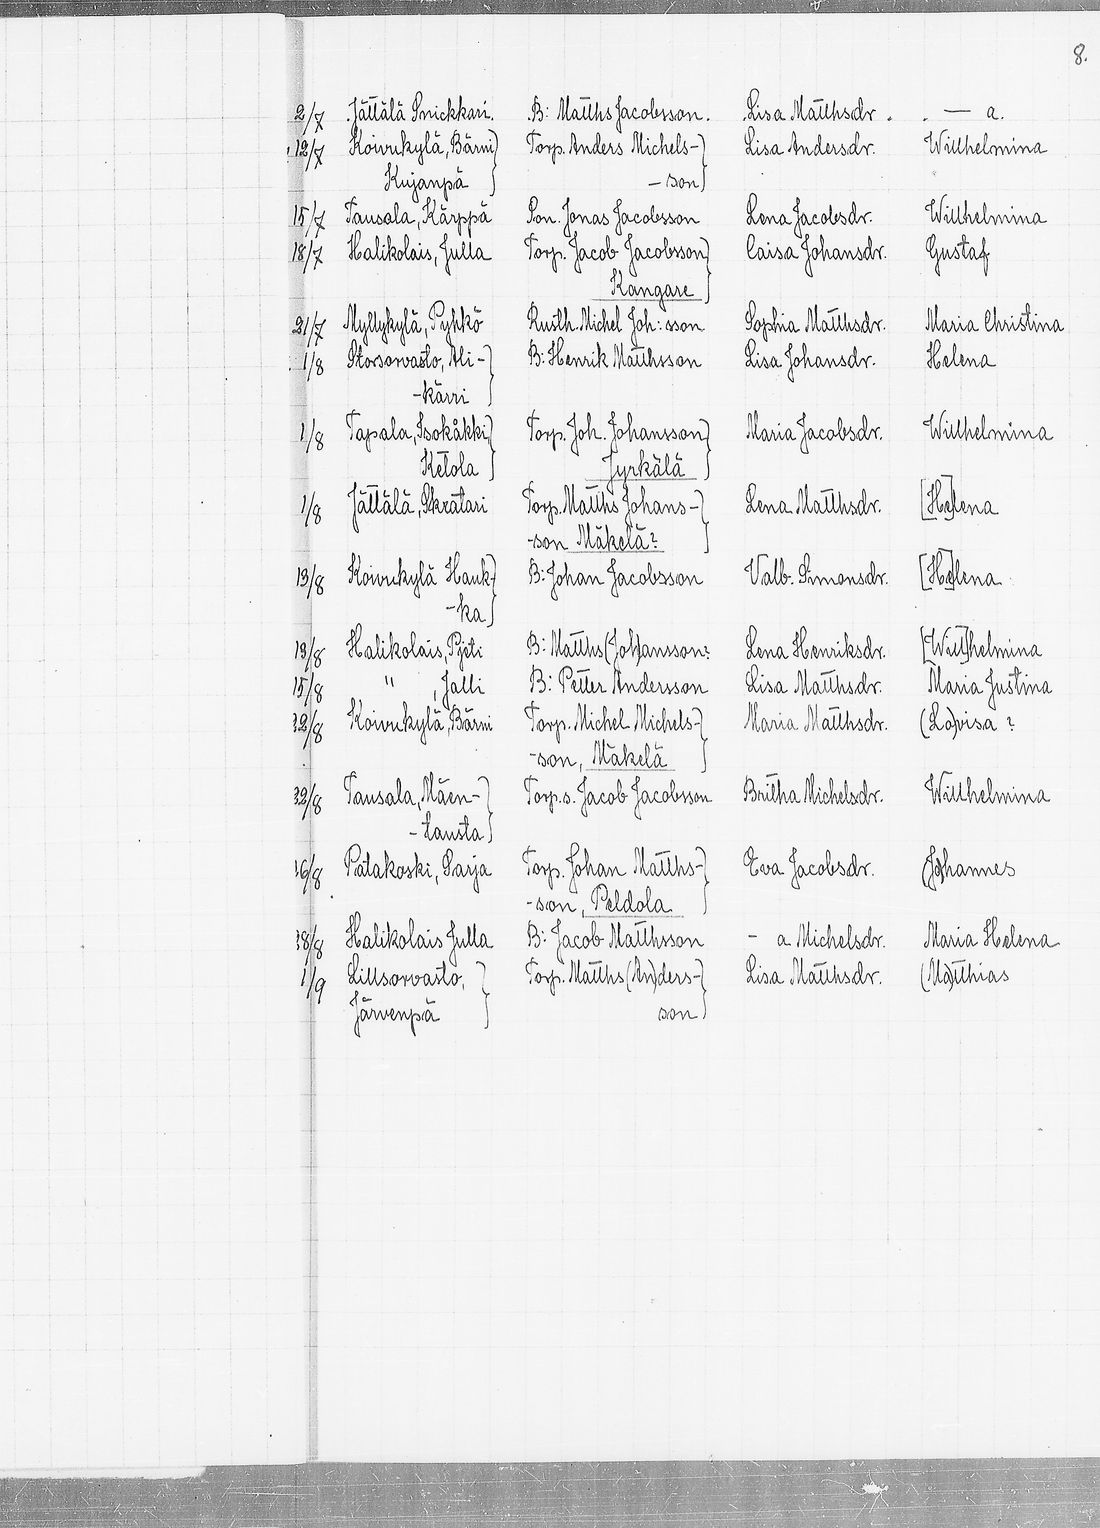 8.
2/7 Jättälä Snickkari. B: Matths Jacobsson. Lisa Matthsdr. — a.
12/7 Koivukylä, Bärni} Torp. Anders Michels-} Lisa Andersdr. Willhelmina
Kujanpä } -son}
15/7 Tausala, Kärppä Son. Jonas Jacobsson Lena Jacobsdr. Willhelmina
18/7 Halikolais, Julla Torp. Jacob Jacobsson} Caisa Johansdr. Gustaf
Kangare }
21/7 Myllykylä, Pyhkö Rusth. Michel Joh:sson Sophia Matthsdr. Maria Christina
1/8 Storsorvasto, Ali-} B: Henrik Matthsson Lisa Johansdr. Helena
-kärri }
1/8 Tapala, Isokåkki} Torp. Joh. Johansson} Maria Jacobsdr. Willhelmina
Ketola } Jyrkälä }
1/8 Jättälä, Skratari Torp. Matths Johans-} Lena Matthsdr. [He]lena
-son Mäkelä? }
13/8 Koivukylä Hauk-} B: Johan Jacobsson Valb. Simonsdr. [He]lena
-ka}
13/8 Halikolais, Pjeti B: Matths (Joh)ansson? Lena Henriksdr. [Will]helmina
15/8 " , Jalli B: Petter Andersson Lisa Matthsdr. Maria Justina
22/8 Koivukylä, Bärni Torp. Michel Michels-} Maria Matthsdr. (Lo)visa ?
-son, Mäkelä }
22/8 Tausala, Mäen-} Torp.s. Jacob Jacobsson Britha Michelsdr. Willhelmina
-tausta}
26/8 Patakoski, Sarja Torp. Johan Matths-} Eva Jacobsdr. (Jo)hannes
-son, Peldola }
28/8 Halikolais Julla B: Jacob Matthsson - a Michelsdr. Maria Helena
1/9 Lillsorvasto, } Torp. Matths (An)ders-} Lisa Matthsdr. (Ma)tthias
Järvenpä } son }